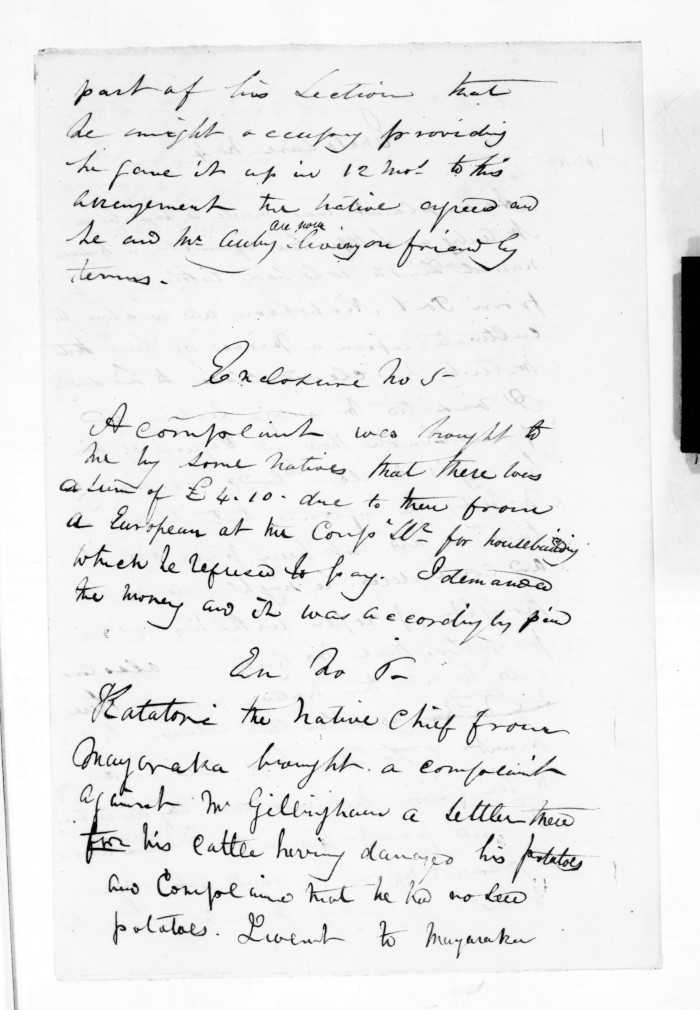 part of his Section that
he might occupy providing
he gave it up in 12 Mos. to this
arrangement the Native agreed and
he and Mr are now living on friendly
terms.
Enclosure No 5
A complaint was brought to
me by some Natives that there was
a sum of £4.10. due to them from
a European at the Compys for housebuilding
which he refused to pay. I demanded
the money and it was accordingly paid
En No
Katatori the Native Chief from
Mayaraka brought a complaint
against Mr Gillingham a Settler there
for his Cattle having damaged his potatoes
and Complained that he had no seed
potatoes. I went to Mayaraka